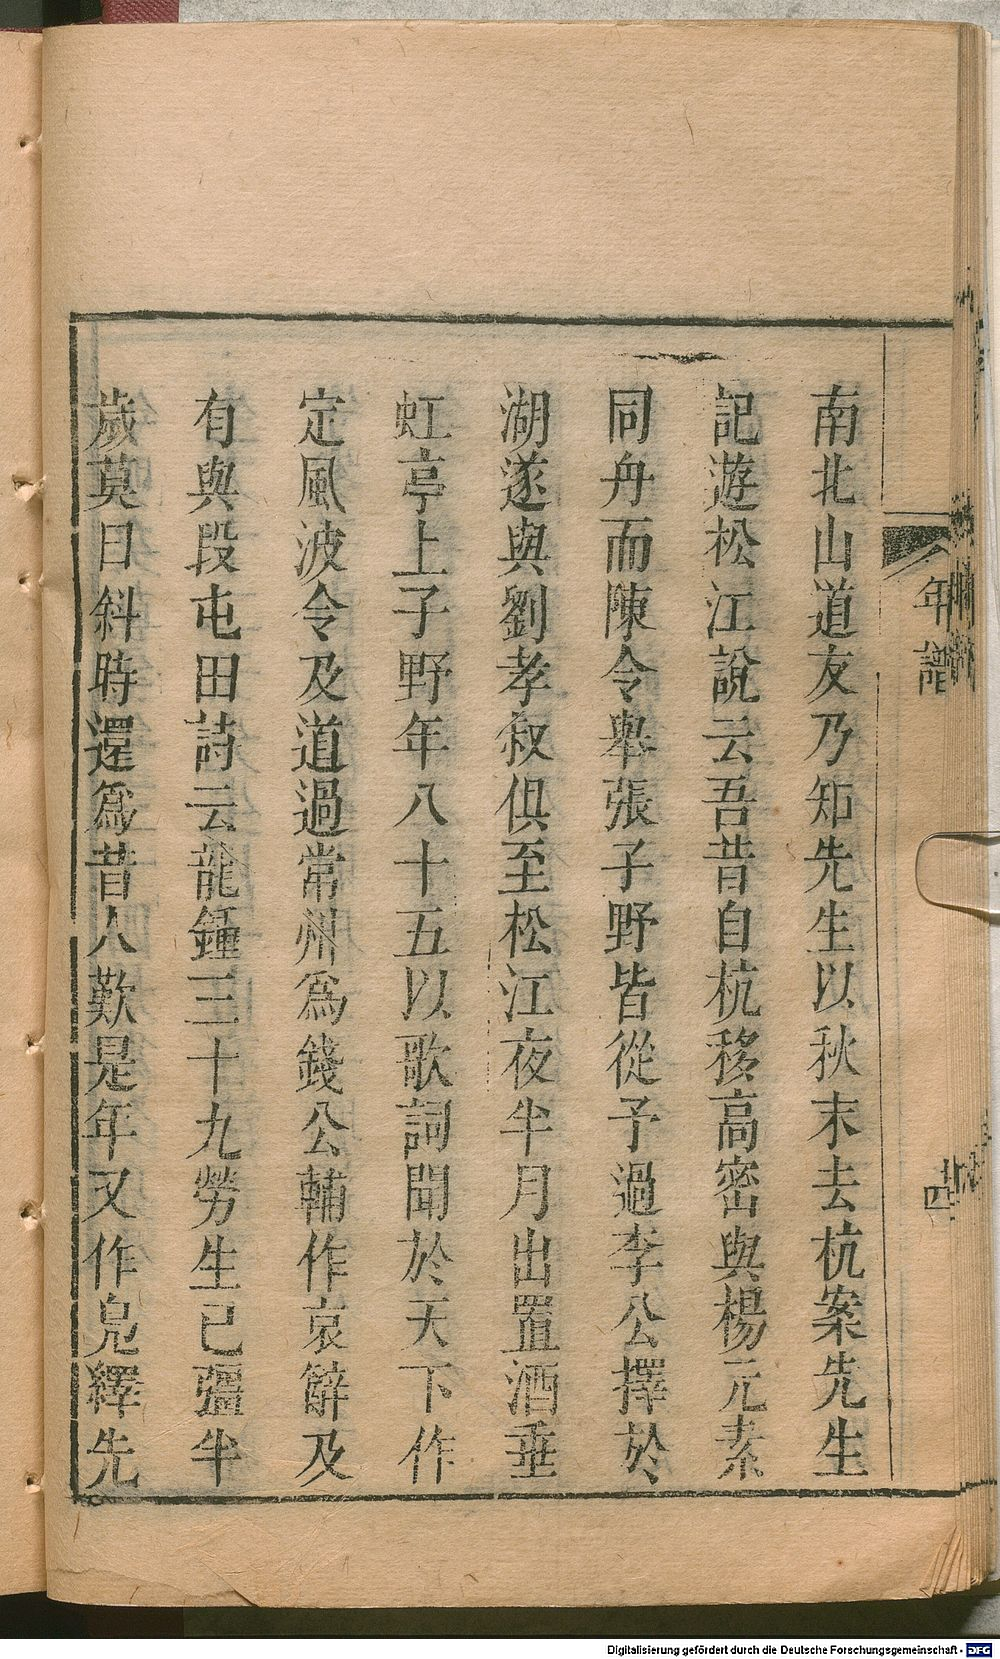 南北山道友乃知先生以秋末去杭案先生
記遊松江說云吾昔自杭移高密與楊元素
同舟而陳令舉張子野皆從予過李公擇於
湖遂與劉孝叔俱至松江夜半月出置酒垂
虹亭上子野年八十五以歌詞聞於天下作
定風波令及道過常州爲錢公輔作哀辭及
有與段屯田詩云龍鍾三十九勞生已彊半
歲莫日斜時還爲昔人歎是年又作鳧繹先
年譜
四
Digitalisierung gefördert durch die Deutsche Forschungsgemeinschaft - DFG